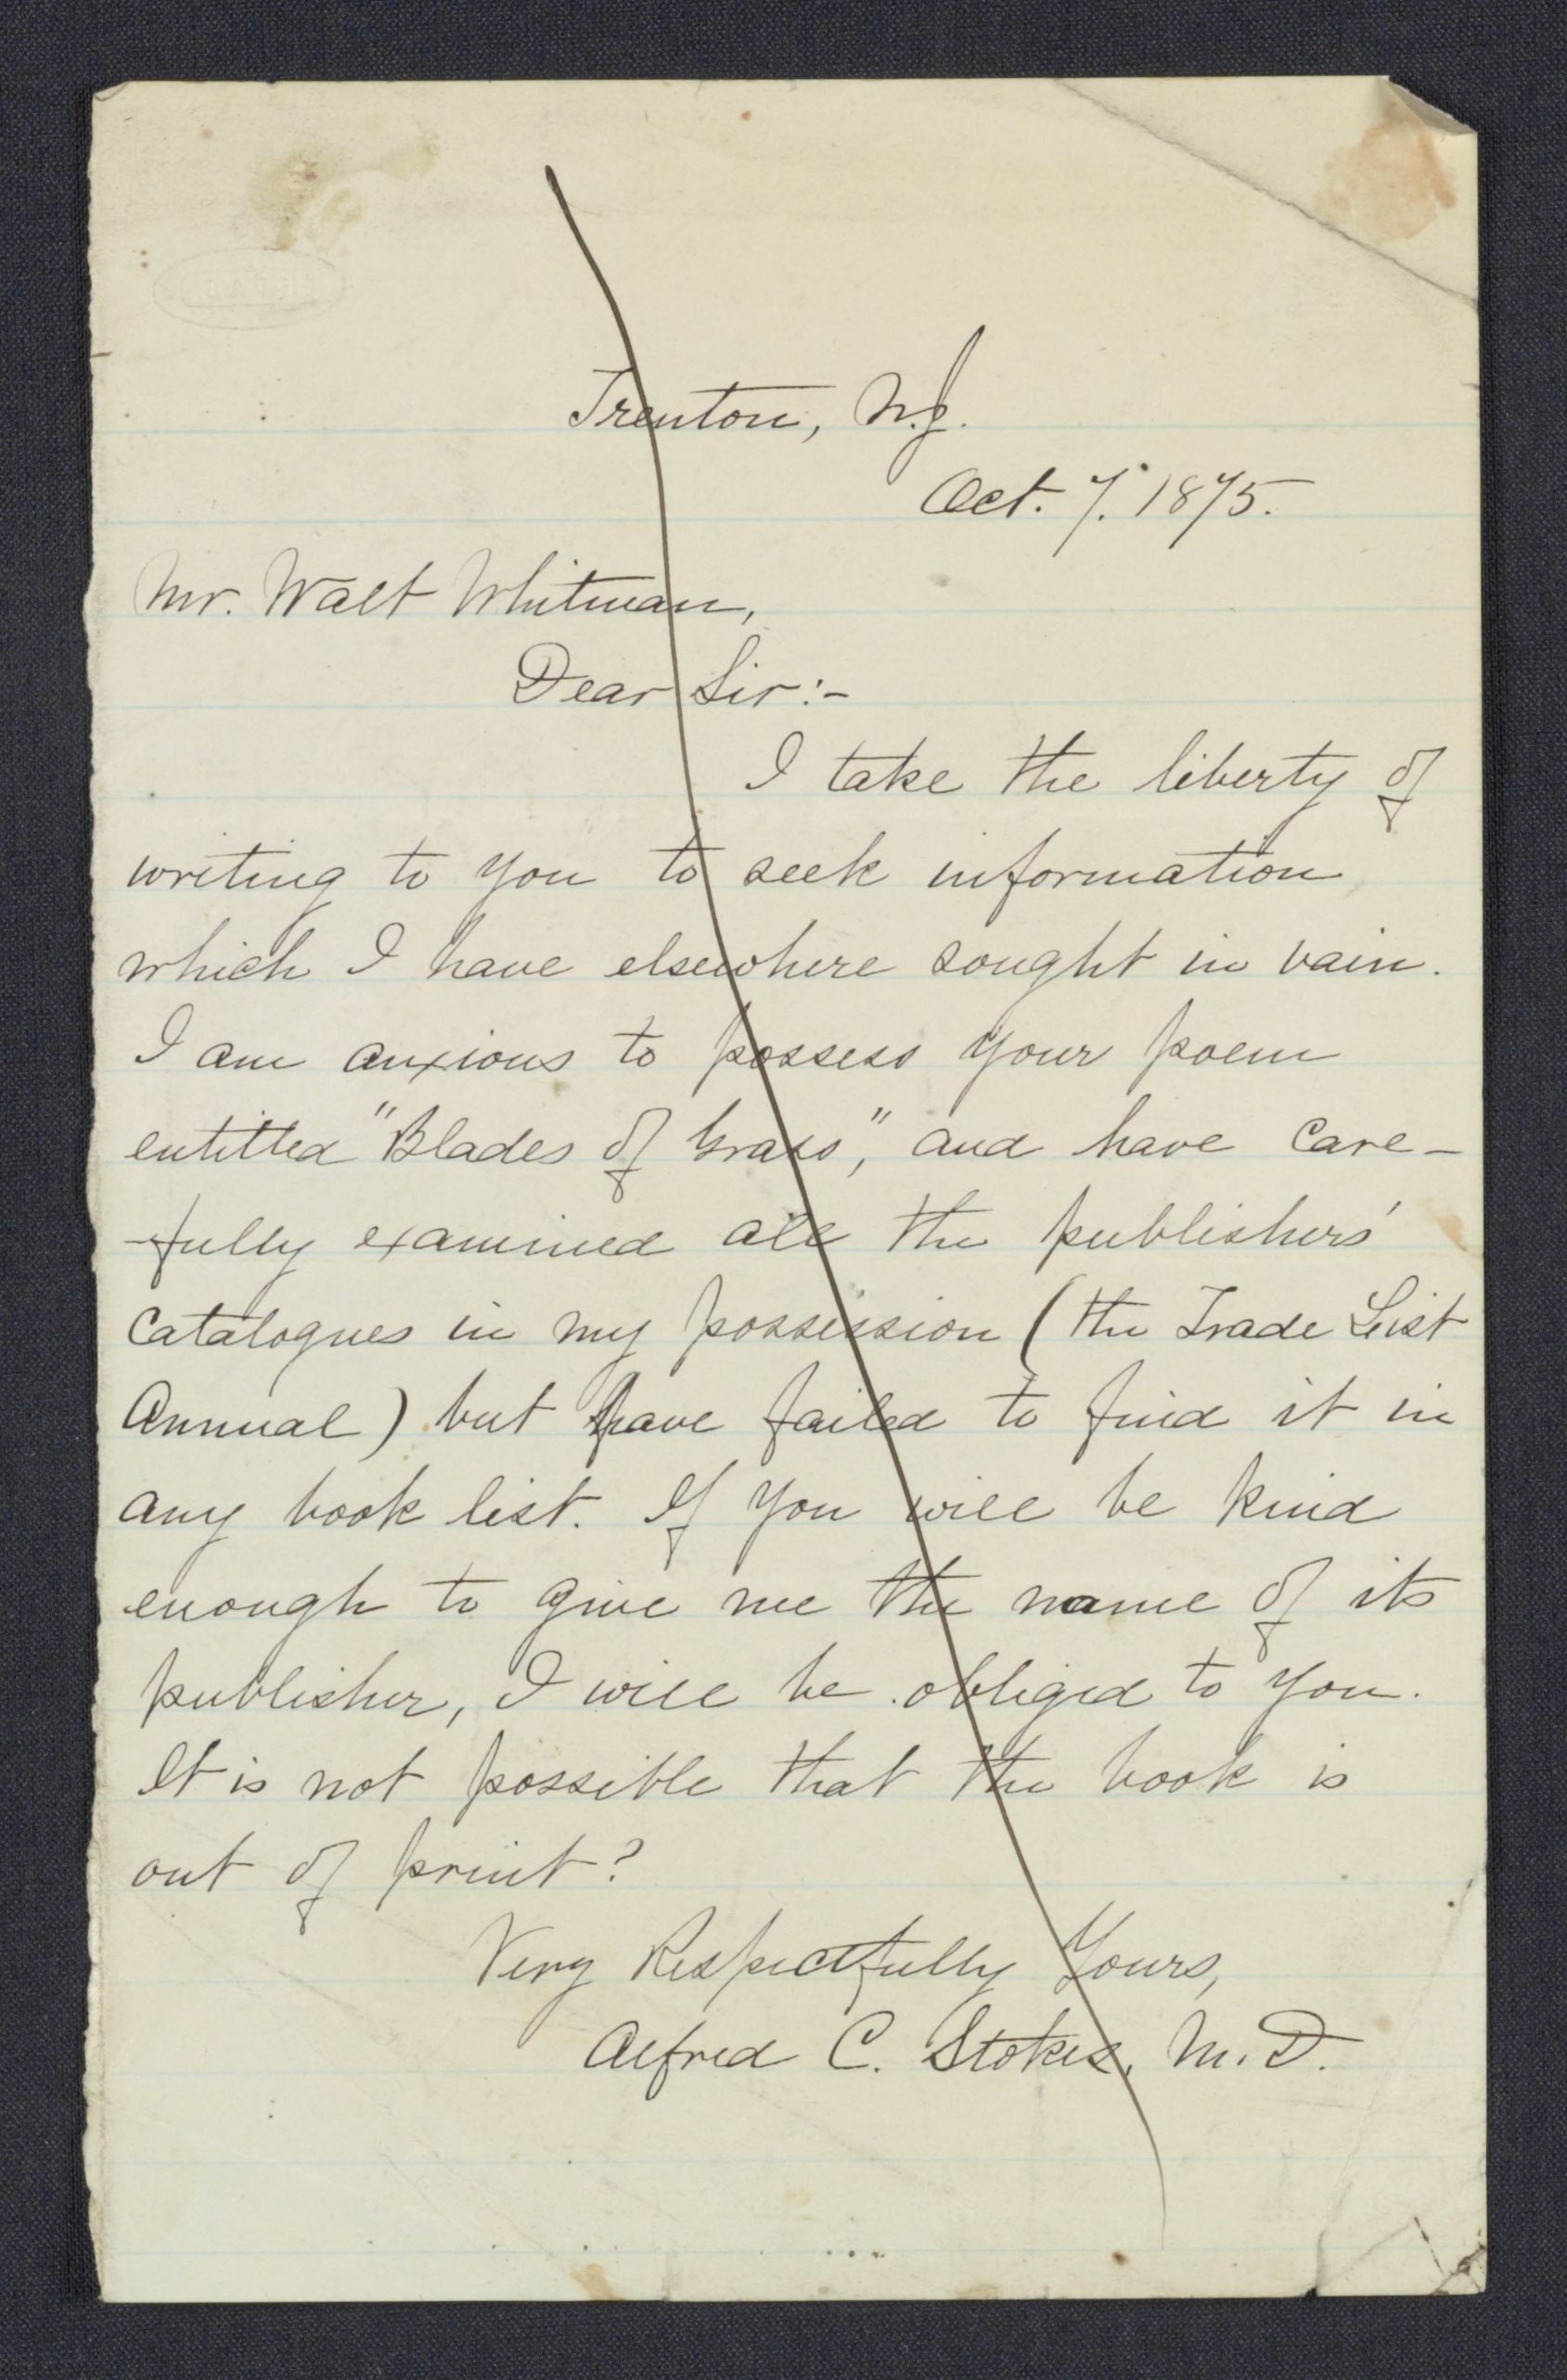 Trenton, N.J.
Oct. 7. 1875.
Mr. Walt Whitman,
Dear Sir:-
I take the liberty of
writing to you to seek information
which I have elsewhere sought in vain.
I am anxious to possess your poem
entitled "Blades of Grass," and have care-
-fully examined all the publishers'
catalogues in my possession (the Trade List
Annual) but have failed to find it in
any book list. If you will be kind
enough to give me the name of its
publisher, I will be obliged to you.
It is not possible that the book is
out of print?
Very Respectfully Yours,
Alfred C. Stokes, M.D.